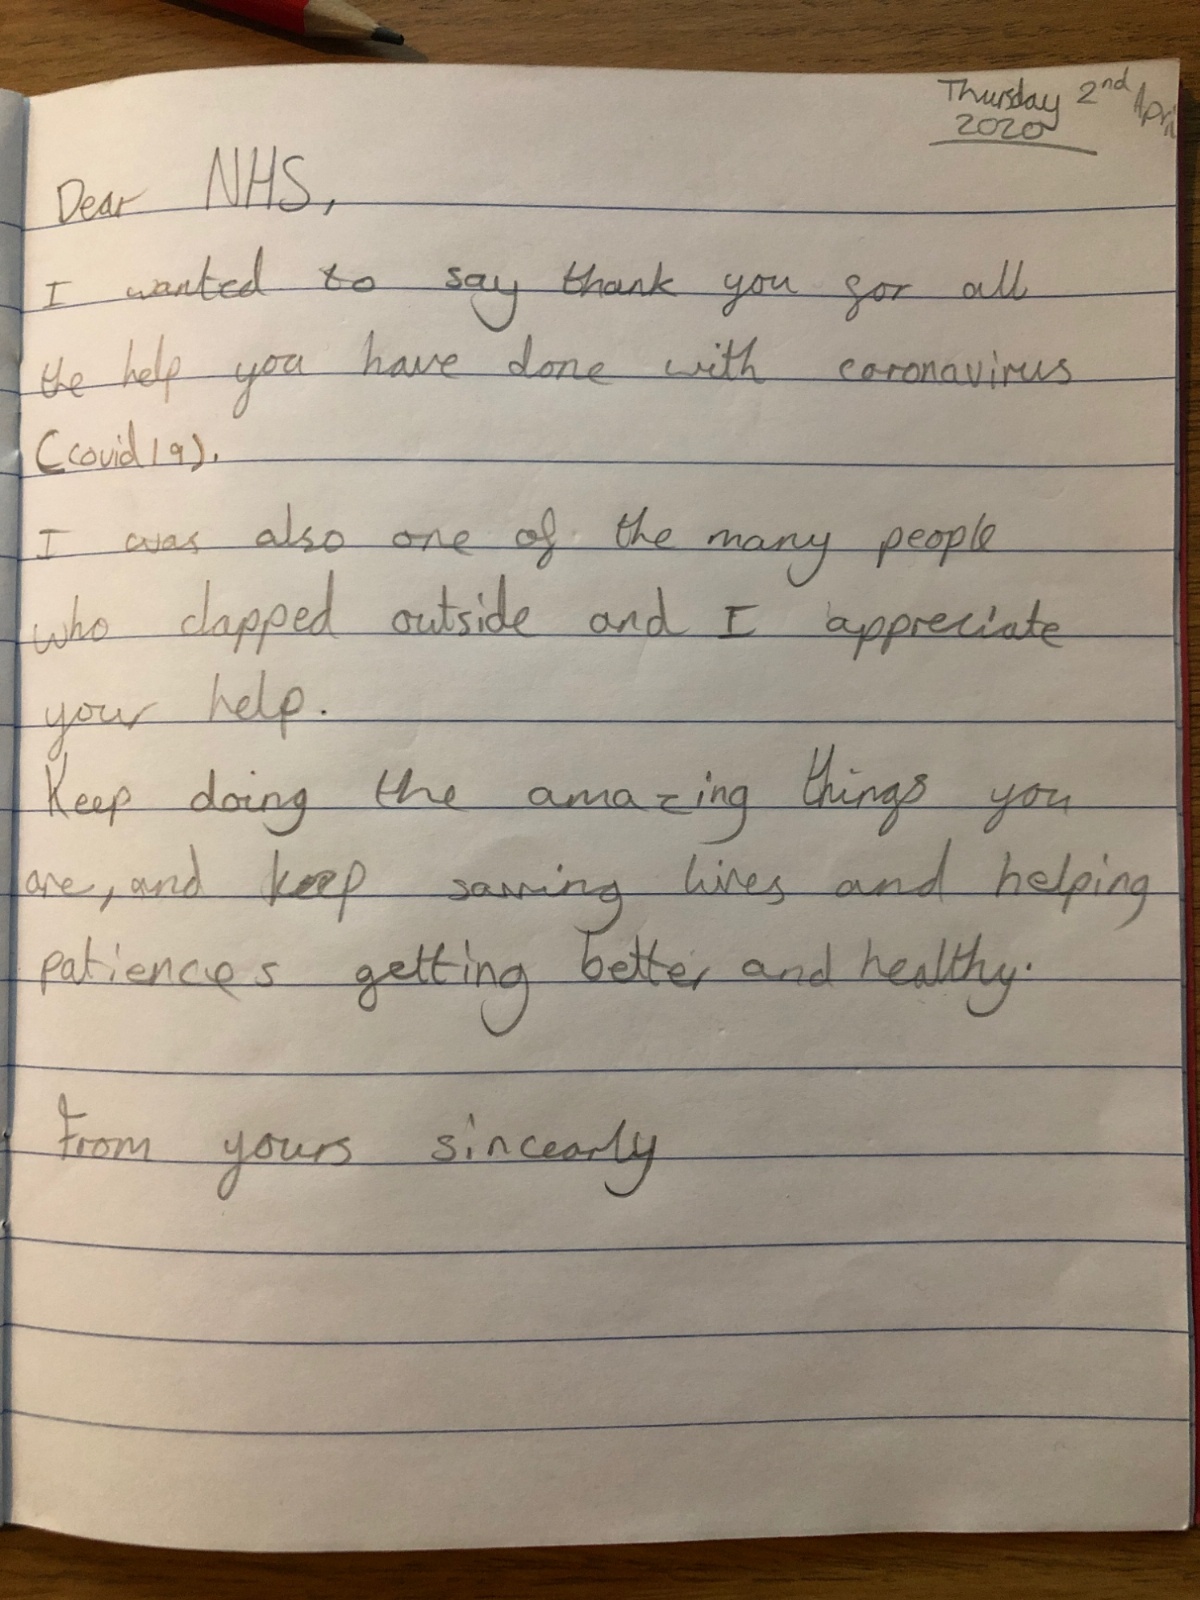 Thursday 2nd April
2020
Dear NHS,
I wanted to say thank you for all
the help you have done with coronavirus
(covid19).
I was also one of the many people
who clapped outside and I appreciate
your help.
Keep doing the amazing things you
are, and keep saving lives and helping
patiences getting better and healthy.
From yours sincearly